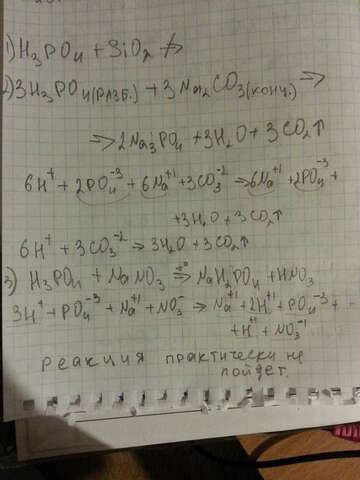 1) H₃PO₄ + SiO₂ ≠>
2) 3H₃PO₄(РАЗБ.) + 3Na₂CO₃(конч.) =>
=> 2Na₃PO₄ + 3H₂O + 3CO₂↑
6H⁺ + 2PO₄⁻³ + 6Na⁺¹ + 3CO₃⁻² => 6Na⁺¹ + 2PO₄⁻³ +
+ 3H₂O + 3CO₂↑
6H⁺ + 3CO₃⁻² → 3H₂O + 3CO₂↑
3) H₃PO₄ + NaNO₃ →t° NaH₂PO₄ + HNO₃
3H⁺ + PO₄⁻³ + Na⁺¹ + NO₃⁻ → Na⁺¹ + 2H⁺¹ + PO₄⁻³ +
+ H⁺¹ + NO₃⁻¹
реакция практически не
пойдет